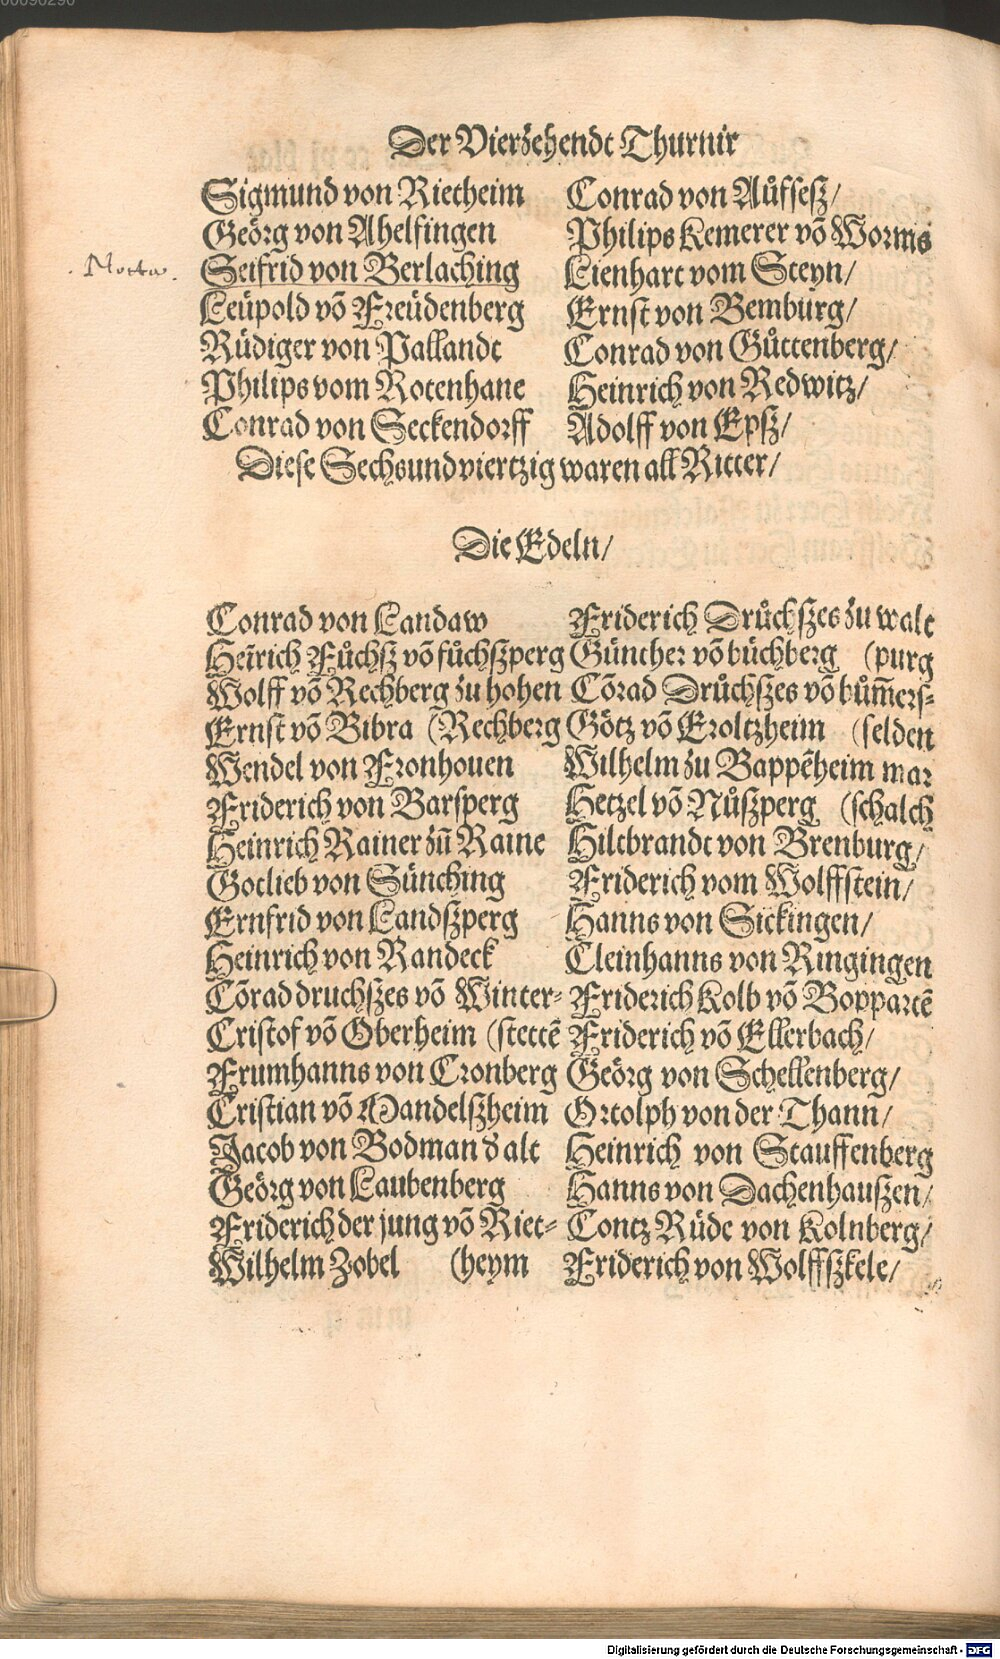 Der Vierzehendt Thurnir
Sigmund von Rietheim
Geörg von Ahelfingen
Notta
Seifrid von Berlaching
Leüpold võ Freüdenberg
Rüdiger von Pallandt
Philips vom Rotenhane
Conrad von Seckendorff
Conrad von Aůfsesz/
Philips Kemerer võ Worms
Lienhart vom Steyn/
Ernst von Bemburg/
Conrad von Gůttenberg/
Heinrich von Redwitz/
Adolff von Epsz/
Diese Sechsundviertzig waren all Ritter/
Die Edeln/
Conrad von Landaw
Heĩrich Fůchsz võ fůchszperg
Wolff võ Rechberg zu hohen
Ernst võ Bibra (Rechberg
Wendel von Fronhouen
Friderich von Barsperg
Heinrich Rainer zũ Raine
Gotlieb von Sünching
Ernfrid von Landszperg
Heinrich von Randeck
Cõrad druchszes võ Winter=
Cristof võ Oberheim (stettẽ
Frumhanns von Cronberg
Cristian võ Mandelszheim
Jacob von Bodman d alt
Geörg von Laubenberg
Friderich der jung võ Riet=
Wilhelm Zobel (heym
Friderich Drůchszes zu walt
Günther võ büchberg (purg
Cõrad Drůchszes võ bům̃ers=
Götz võ Eroltzheim (felden
Wilhelm zu Bappẽheim mar
Hetzel võ Nůszperg (schalch
Hiltbrandt von Brenburg/
Friderich vom Wolffstein/
Hanns von Sickingen/
Cleinhanns von Ringingen
Friderich Kolb võ Boppartẽ
Friderich võ Ellerbach/
Geörg von Schellenberg/
Ortolph von der Thann/
Heinrich von Stauffenberg
Hanns von Dachenhauszen/
Contz Rüde von Kolnberg/
Friderich von Wolffszkele/
Digitalisierung gefördert durch die Deutsche Forschungsgemeinschaft - DFG